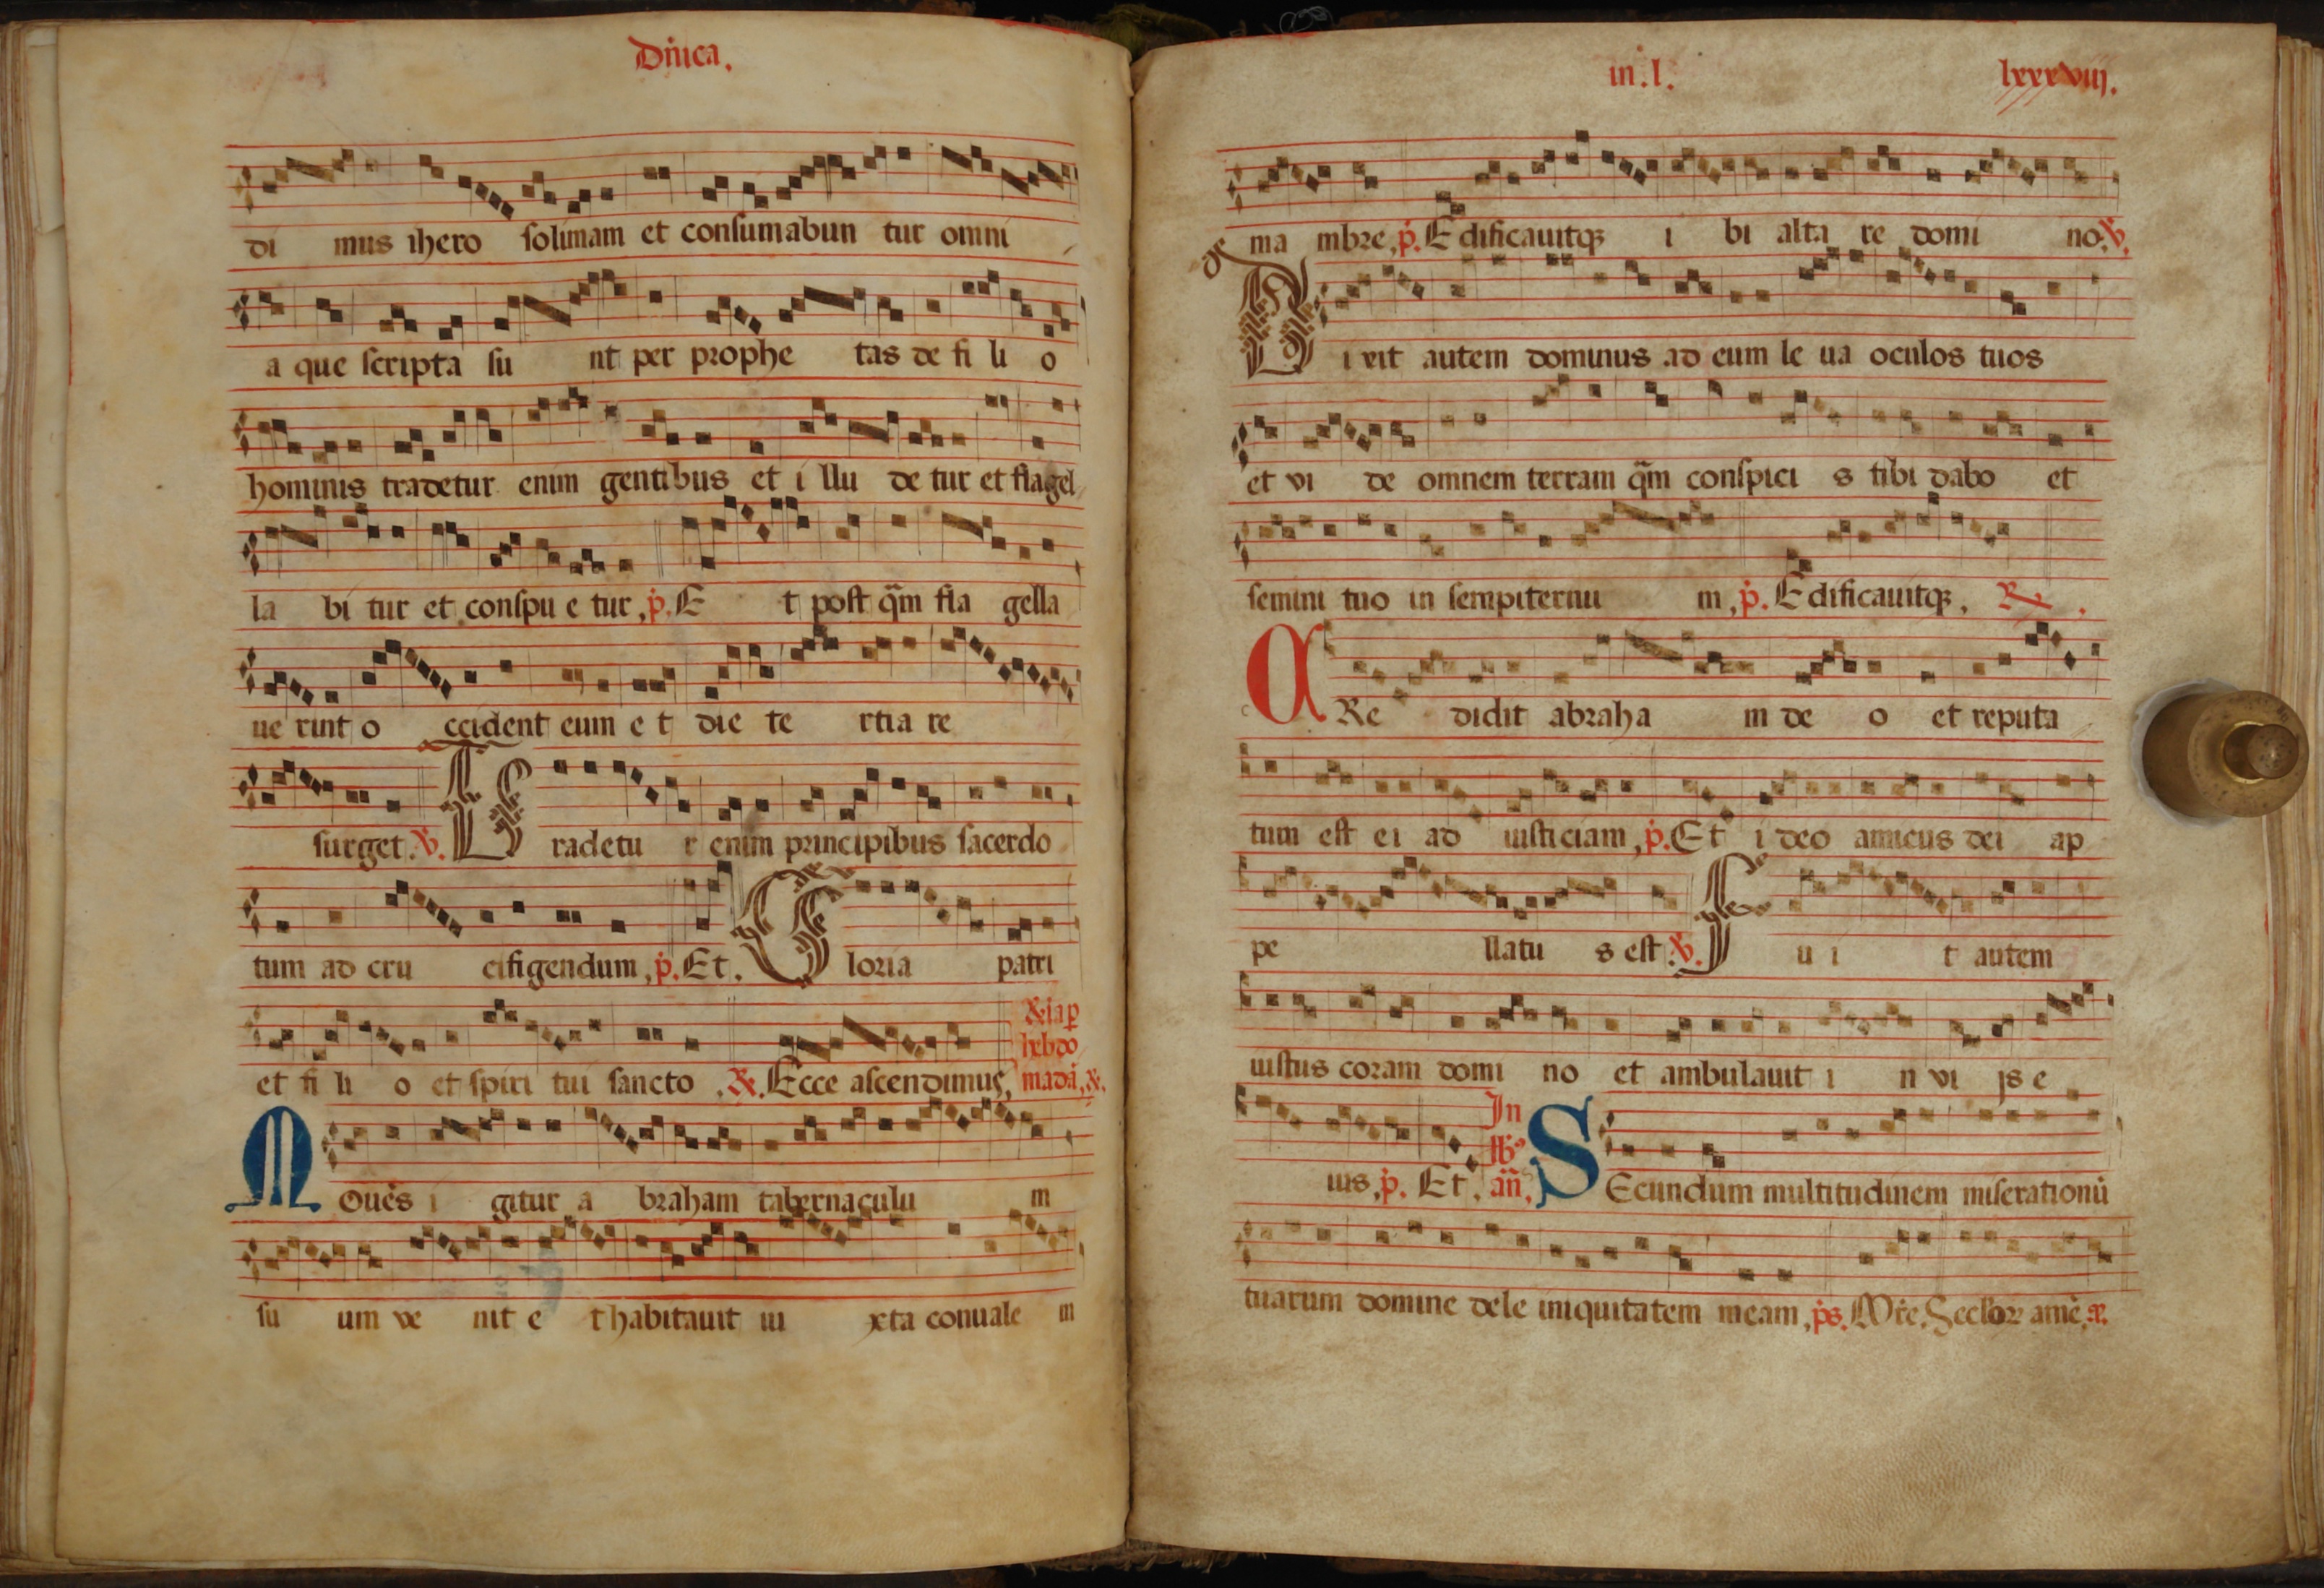 Dñica.
di mus ihero solimam et consumabun tur omni
a que scripta su nt per prophe tas de fi li o
hominis tradetur enim gentibus et i llu de tur et flagel
la bi tur et conspu e tur, p. E t post q̃m fla gella
ue rint o ccident eum e t die te rtia re
surget. v. T radetu r enim principibus sacerdo
tum ad cru cifigendum, p. Et. G loria patri
et fi li o et spiri tui sancto. R. Ecce ascendimus,
M Ouẽs i gitur a braham tabernaculu m
su um ve nit e t habitauit iu xta conuale m
in. l. lxxxviij.
ma mbre, p. E dificauitqȝ i bi alta re domi no. v.
D i xit autem dominus ad eum le ua oculos tuos
et vi de omnem terram q̃m conspici s tibi dabo et
semini tuo in sempiternu m, p. E dificauitqȝ, R.
C Re didit abraha m de o et reputa
tum est ei ad iusticiam, p. Et i deo amicus dei ap
pe llatu s est. v. F u i t autem
iustus coram domi no et ambulauit i n vi js e
ius, p. Et, In añ, S Ecundum multitudinem miserationũ
tuarum domine dele iniquitatem meam, ps.